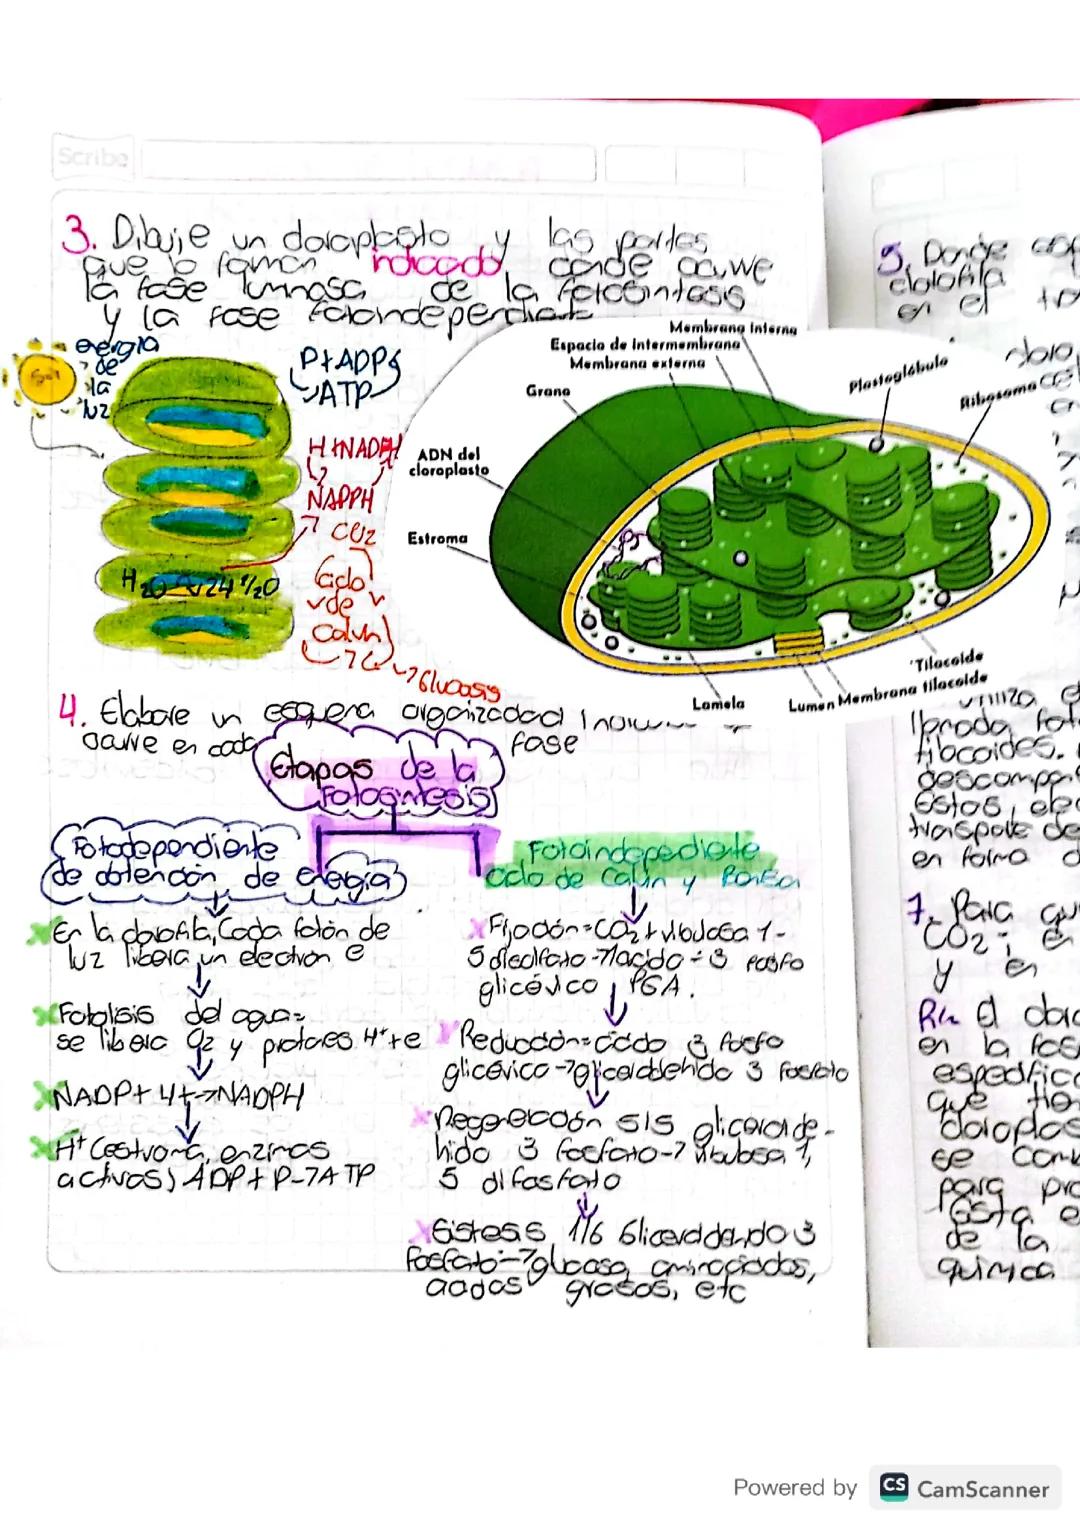 Scribe
3. Dibuje un cloroplasto y las partes
que lo forman indicado donde ocurre
la fase luminosa de la fotosintesis
y la fase fotoindependiente
energia
de
la
luz
Sol
P+ADP
ATP
H+NADPH
NADPH
CO2
Ciclo
de
Calvin
Glucosis
H2O
Membrana interna
Espacio de intermembrana
Membrana externa
Grana
ADN del
cloroplasto
Estroma
Plastoglóbulo
Ribosoma
Tilacoide
Membrana tilacoide
Lumen
Lamela
4. Elabore un esquema organizado
ocurre en cada fase
Etapas de la
Fotosintesis
Fotodependiente
de obtención de energia
En la clorofila, Cada fotón de
luz libera un electron e
Fotolisis del agua=
se libera O2 y protones H++e
NADP+ H+->NADPH
H+ (estroma, enzimas
activas) ADP+P->ATP
Fotoindependiente
Ciclo de Calvin y
Fijación=CO2+ribulosa 1-
5 difosfato->acido-3 fosfo
glicérico, PGA.
Reducción=ácido 3 fosfo
glicérico->gliceraldehido 3 fosfato
Regeneración 5/6 gliceralde-
hido 3 fosfato-> ribulosa 1,
5 difosfato
Sistesis 1/6 Gliceraldehido 3
fosfato->glucosa, aminoacidos,
acidos grasos, etc
5. Donde
clorofila
en el
utiliza
llamada
tilacoides.
Estos,
transporte de
en forma
7. Para
CO2;
y en
R// El
en la
que
se
para
Esta
de la
quimica
Powered by CS CamScanner